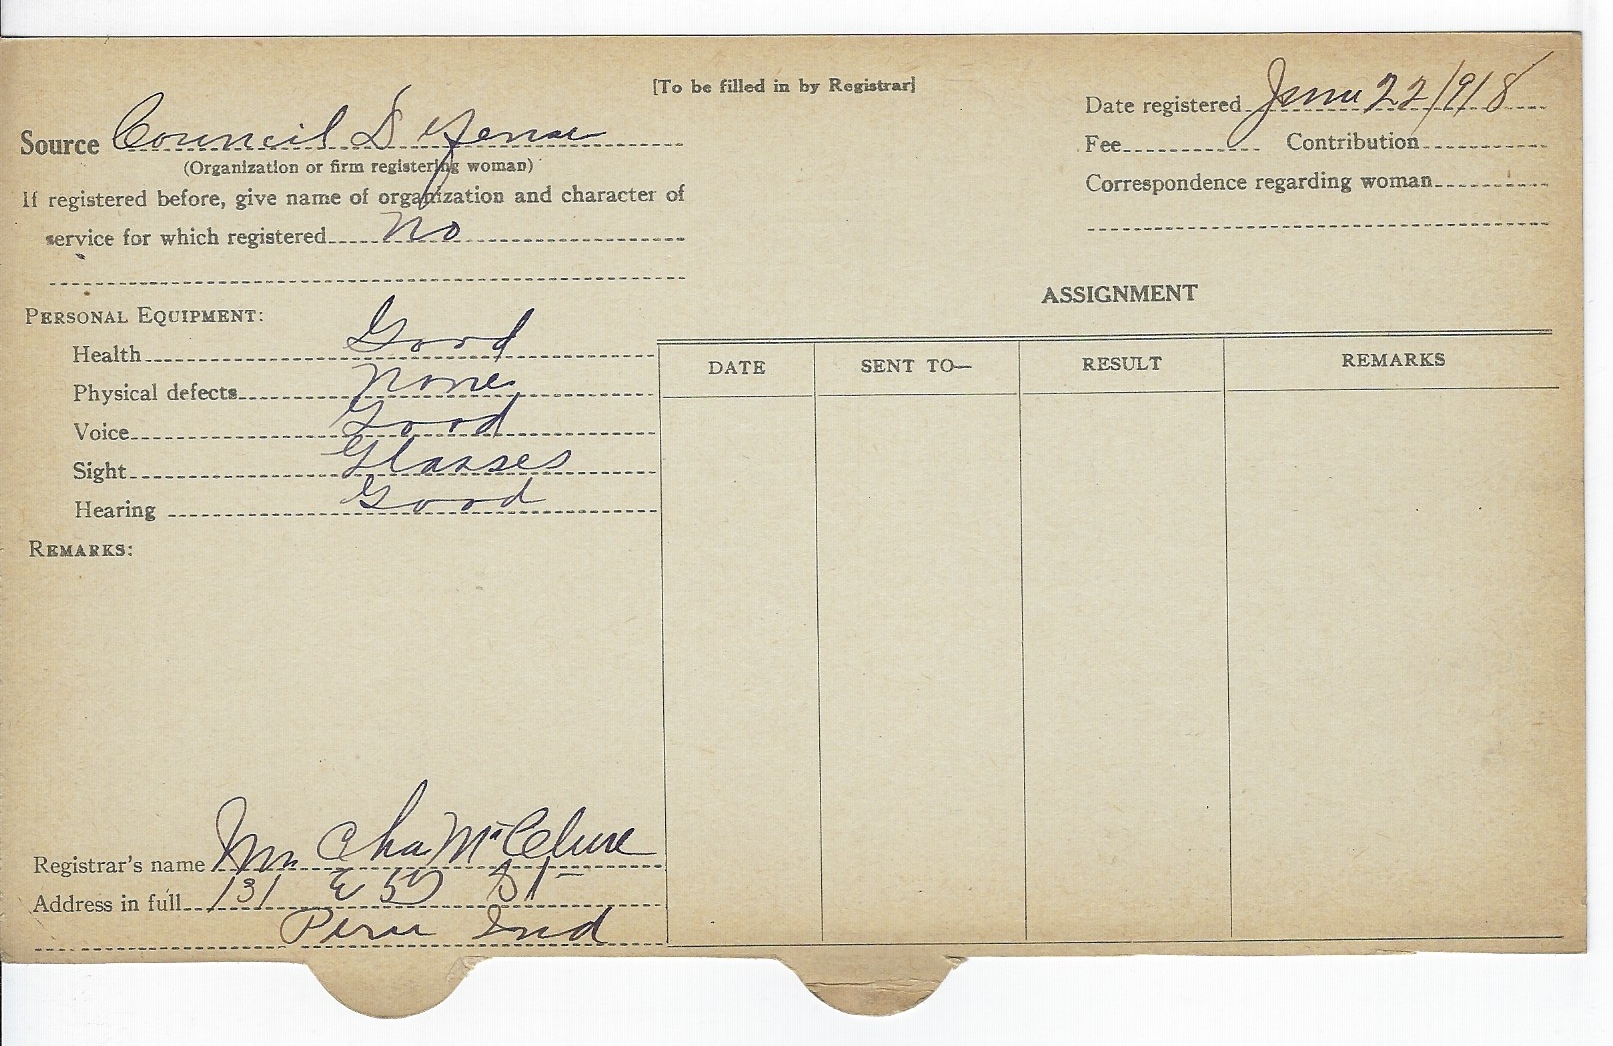 [To be filled in by Registrar]
Date registered June 22/918
Source Council Defense
(Organization or firm registering woman)
Fee Contribution
If registered before, give name of organization and character of
service for which registered No
Correspondence regarding woman
ASSIGNMENT
PERSONAL EQUIPMENT:
Health Good
Physical defects None
Voice Good
Sight Glasses
Hearing Good
DATE SENT TO— RESULT REMARKS
REMARKS:
Registrar's name Mrs Chas McClure
Address in full 131 E 5th St
Peru Ind